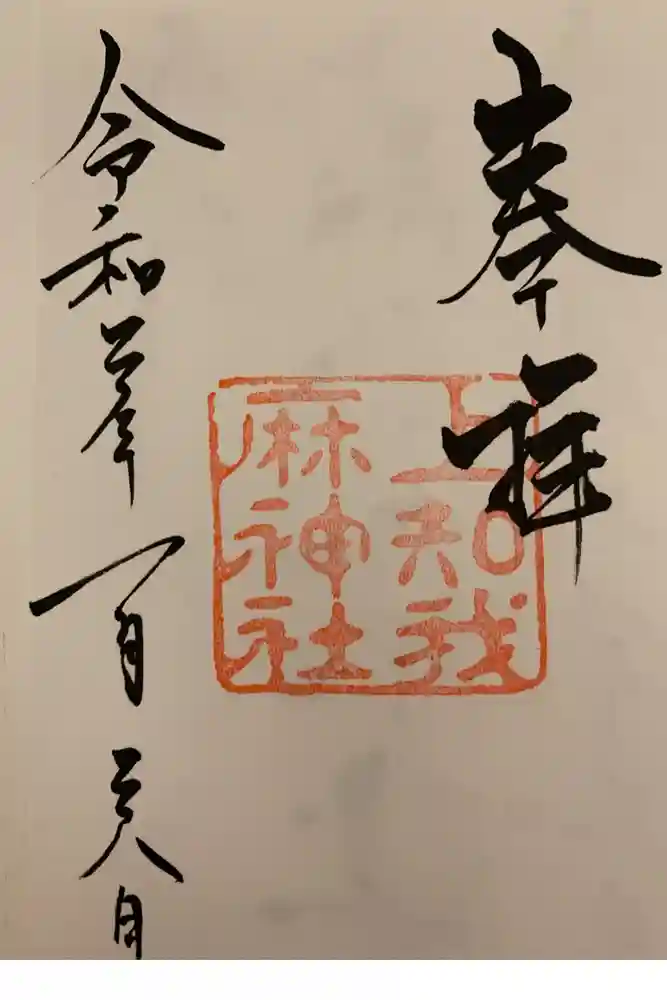 奉拝
上知我
麻神社
令和二年一月二八日